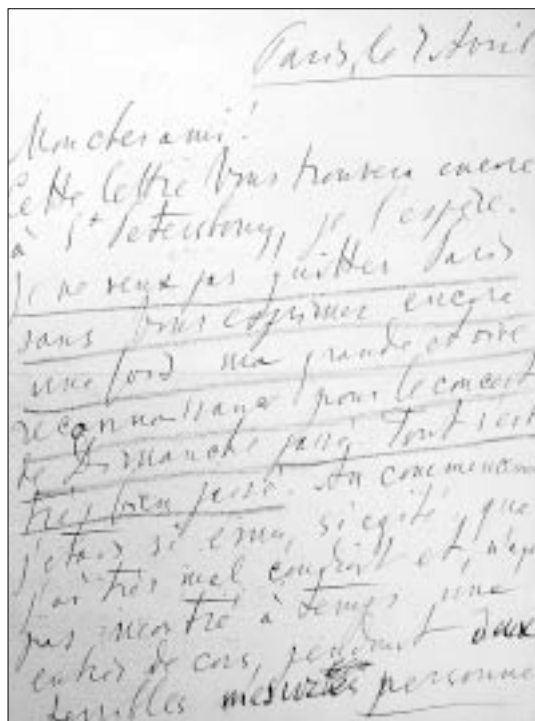 Paris, le 7 Avril
Mon cher ami!
Cette lettre Vous trouvera encore
à St Petersbourg, je l'espère.
Je ne veux pas quitter Paris
sans Vous exprimer encore
une fois ma grande et vive
reconnaissance pour le concert
de Dimanche passé. Tout s'est
très bien passé. Au commencem
j'étais si ému, si agité, que
j'ai très mal conduit et, n'aya
pas montré à temps une
entrée de cors, pendant deux
terribles mesures personne